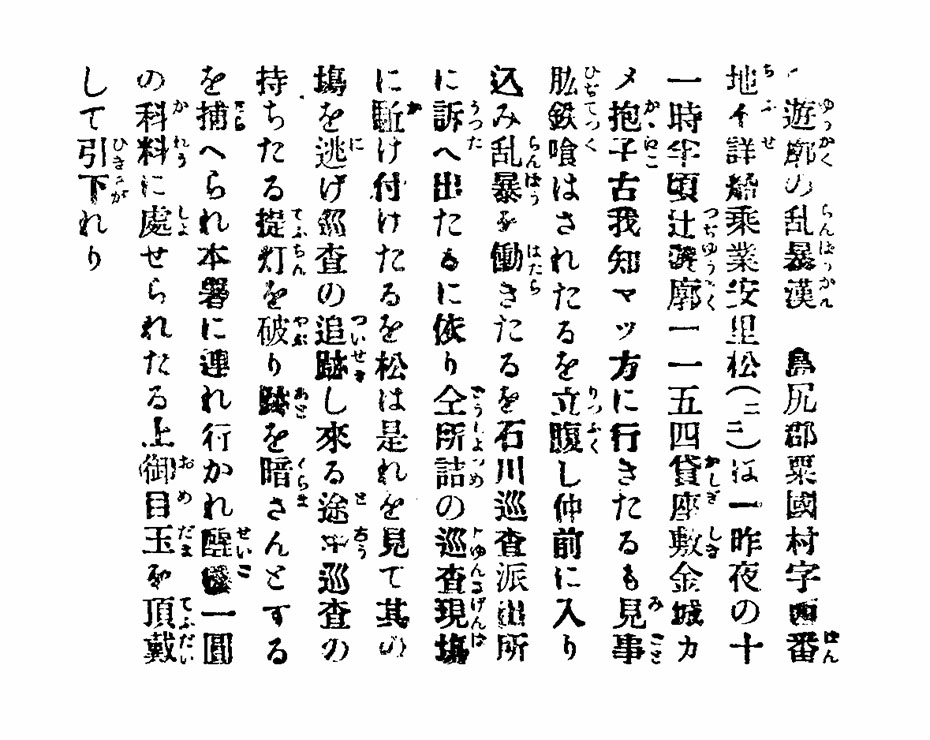 遊廓の乱暴漢 島尻郡粟國村字西番
地不詳無乗業安里松(二二)は一昨夜の十
一時半頃辻遊廓一一五四貸座敷金城カ
メ抱子古我知マツ方に行きたるも見事
肱鉄喰はされたるを立腹し仲前に入り
込み乱暴を働きたるを石川巡査派出所
に訴へ出たるに依り仝所詰の巡査現塲
に駈け付けたるを松は是れを見て其の
塲を逃げ巡査の追跡し來る途中巡査の
持ちたる提灯を破り跡を暗さんとする
を捕へられ本署に連れ行かれ一圓
の科料に處せられたる上御目玉を頂戴
して引下れり